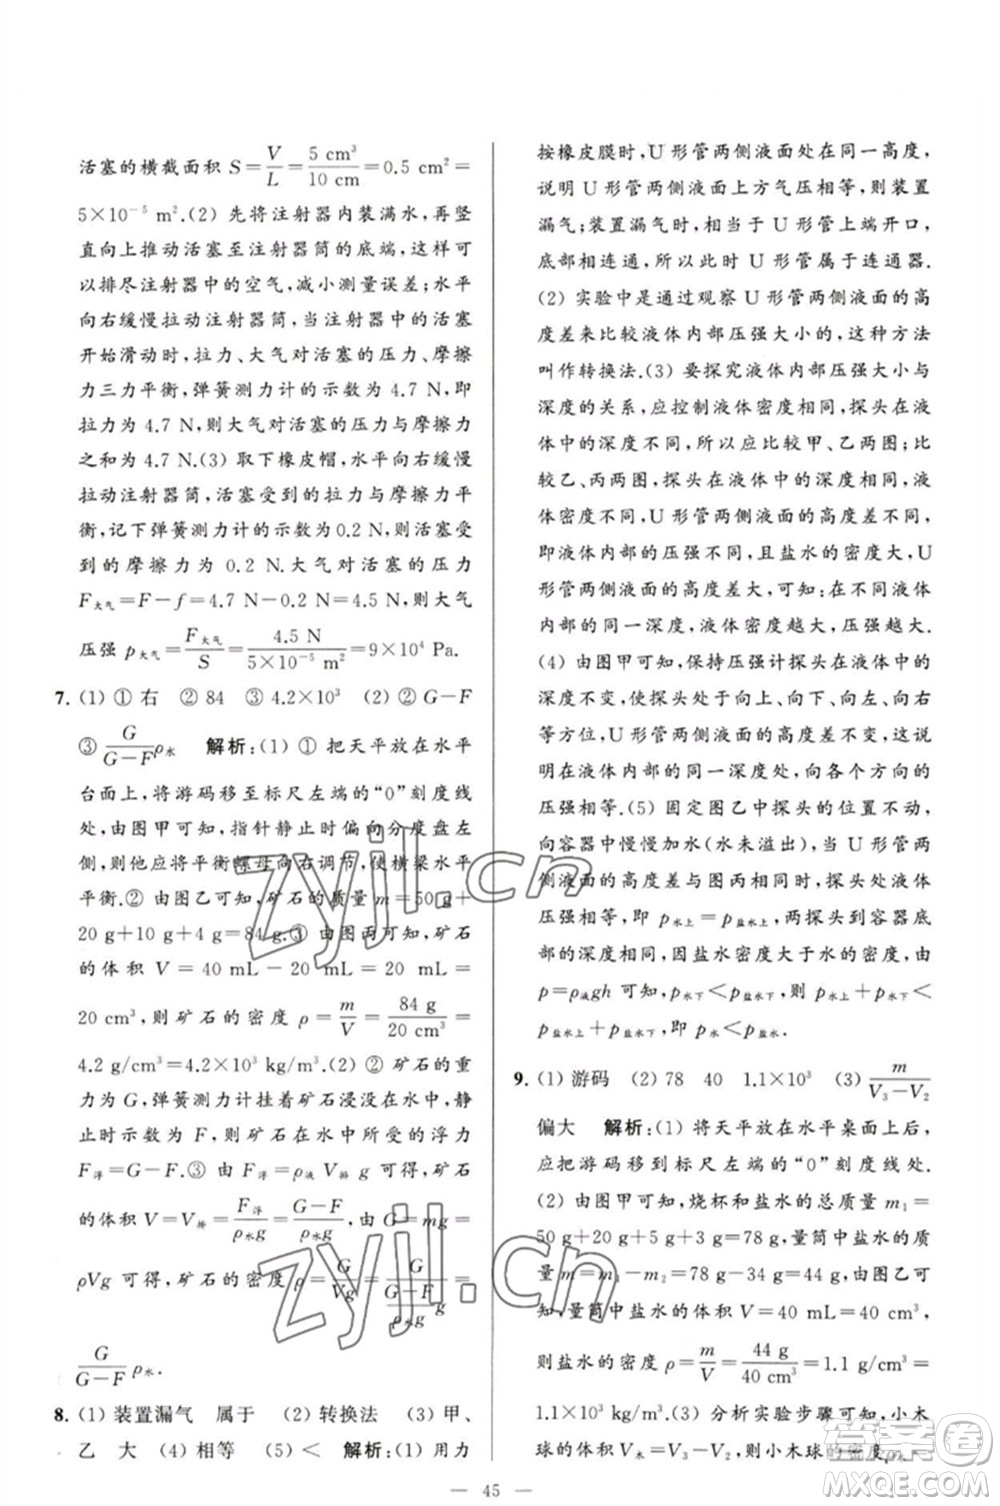 活塞的横截面积 S=V/L=5 cm³/10 cm=0.5 cm²=
5×10⁻⁵ m².(2) 先将注射器内装满水，再竖
直向上推动活塞至注射器筒的底端，这样可
以排尽注射器中的空气，减小测量误差；水平
向右缓慢拉动注射器筒，当注射器中的活塞
开始滑动时，拉力、大气对活塞的压力、摩擦
力三力平衡，弹簧测力计的示数为 4.7 N，即
拉力为 4.7 N，则大气对活塞的压力与摩擦力
之和为 4.7 N.(3) 取下橡皮帽，水平向右缓慢
拉动注射器筒，活塞受到的拉力与摩擦力平
衡，记下弹簧测力计的示数为 0.2 N，则活塞
的摩擦力为 0.2 N.大气对活塞的压力
F大气=F-f=4.7 N-0.2 N=4.5 N，则大气
压强 p大气=F大气/S=4.5 N/5×10⁻⁵ m²=9×10⁴ Pa.
7. (1) ① 右 ② 84 ③ 4.2×10³ (2) ② G-F
③ G/(G-F)ρ水 解析：(1) ① 把天平放在水平
台面上，将游码移至标尺左端的“0”刻度线
处，由图甲可知，指针静止时偏向分度盘左
侧，则他应将平衡螺母向右调节，使横梁水平
平衡.② 由图乙可知，矿石的质量 m=50 g+
20 g+10 g+4 g=84 g.③ 由图丙可知，矿石
的体积 V=40 mL-20 mL=20 mL=
20 cm³，则矿石的密度 ρ=m/V=84 g/20 cm³=
4.2 g/cm³=4.2×10³ kg/m³.(2) ② 矿石的重
力为 G，弹簧测力计挂着矿石浸没在水中，静
止时示数为 F，则矿石在水中所受的浮力
F浮=G-F.③ 由 F浮=ρ液V排g 可得，矿石
的体积 V=V排=F浮/ρ水g=(G-F)/ρ水g，由 G=mg=
ρVg 可得，矿石的密度 ρ=G/Vg=G/((G-F)/ρ水g · g)=
G/(G-F)ρ水.
8. (1) 装置漏气 属于 (2) 转换法 (3) 甲、
乙 大 (4) 相等 (5) < 解析：(1) 用力
按橡皮膜时，U 形管两侧液面处在同一高度，
说明 U 形管两侧液面上方气压相等，则装置
漏气；装置漏气时，U 形管上端开口，
底部相连通，所以此时 U 形管属于连通器.
(2) 实验中是通过观察 U 形管两侧液面的高
度差来比较液体内部压强大小的，这种方法
叫作转换法.(3) 要探究液体压强大小与
深度的关系，应控制液体密度相同，探头在液
体中的深度不同，所以应比较甲、乙两图；比
较乙、丙两图，探头在液体中的深度相同，液体
密度不同，U 形管两侧液面的高度差不同，
即液体内部的压强不同，且盐水的密度大，U
形管两侧液面的高度差大，可知：在不同液体
内部的同一深度，液体密度越大，压强越大.
(4) 由图甲可知，保持压强计探头在液体中的
深度不变，使探头处于向上、向下、向左、向右
等方位时，U 形管两侧液面的高度差不变，
说明在液体内部的同一深度处，向各个方向的
压强相等.(5) 固定图乙中探头的位置不动，
向容器中慢慢加水(水未溢出)，当 U 形管两
侧液面的高度差与图丙相同时，探头处液体
压强相等，即 p水上=p盐水上，两探头到容器底
部的深度相同，因盐水密度大于水的密度，由
p=ρ液gh 可知，p水下<p盐水下，则 p水上+p水下<
p盐水上+p盐水下，即 p水<p盐水.
9. (1) 游码 (2) 78 40 1.1×10³ (3) m/(V₃-V₂)
偏大 解析：(1) 将天平放在水平桌面上后，
应把游码移到标尺左端的“0”刻度线处.
(2) 由图甲可知，烧杯和盐水的总质量 m₁=
50 g+20 g+5 g+3 g=78 g，量筒中盐水的质
量 m=m₁-m₂=78 g-34 g=44 g；由图乙可
知，量筒中盐水的体积 V=40 mL=40 cm³，
则盐水的密度 ρ=m/V=44 g/40 cm³=1.1 g/cm³=
1.1×10³ kg/m³.(3) 分析实验步骤可知，小木
球的体积 V木=V₃-V₂，则小木球的密度 ρ木
45
zyjl.cn
zyjl.cn
答案圈
MXQE.COM